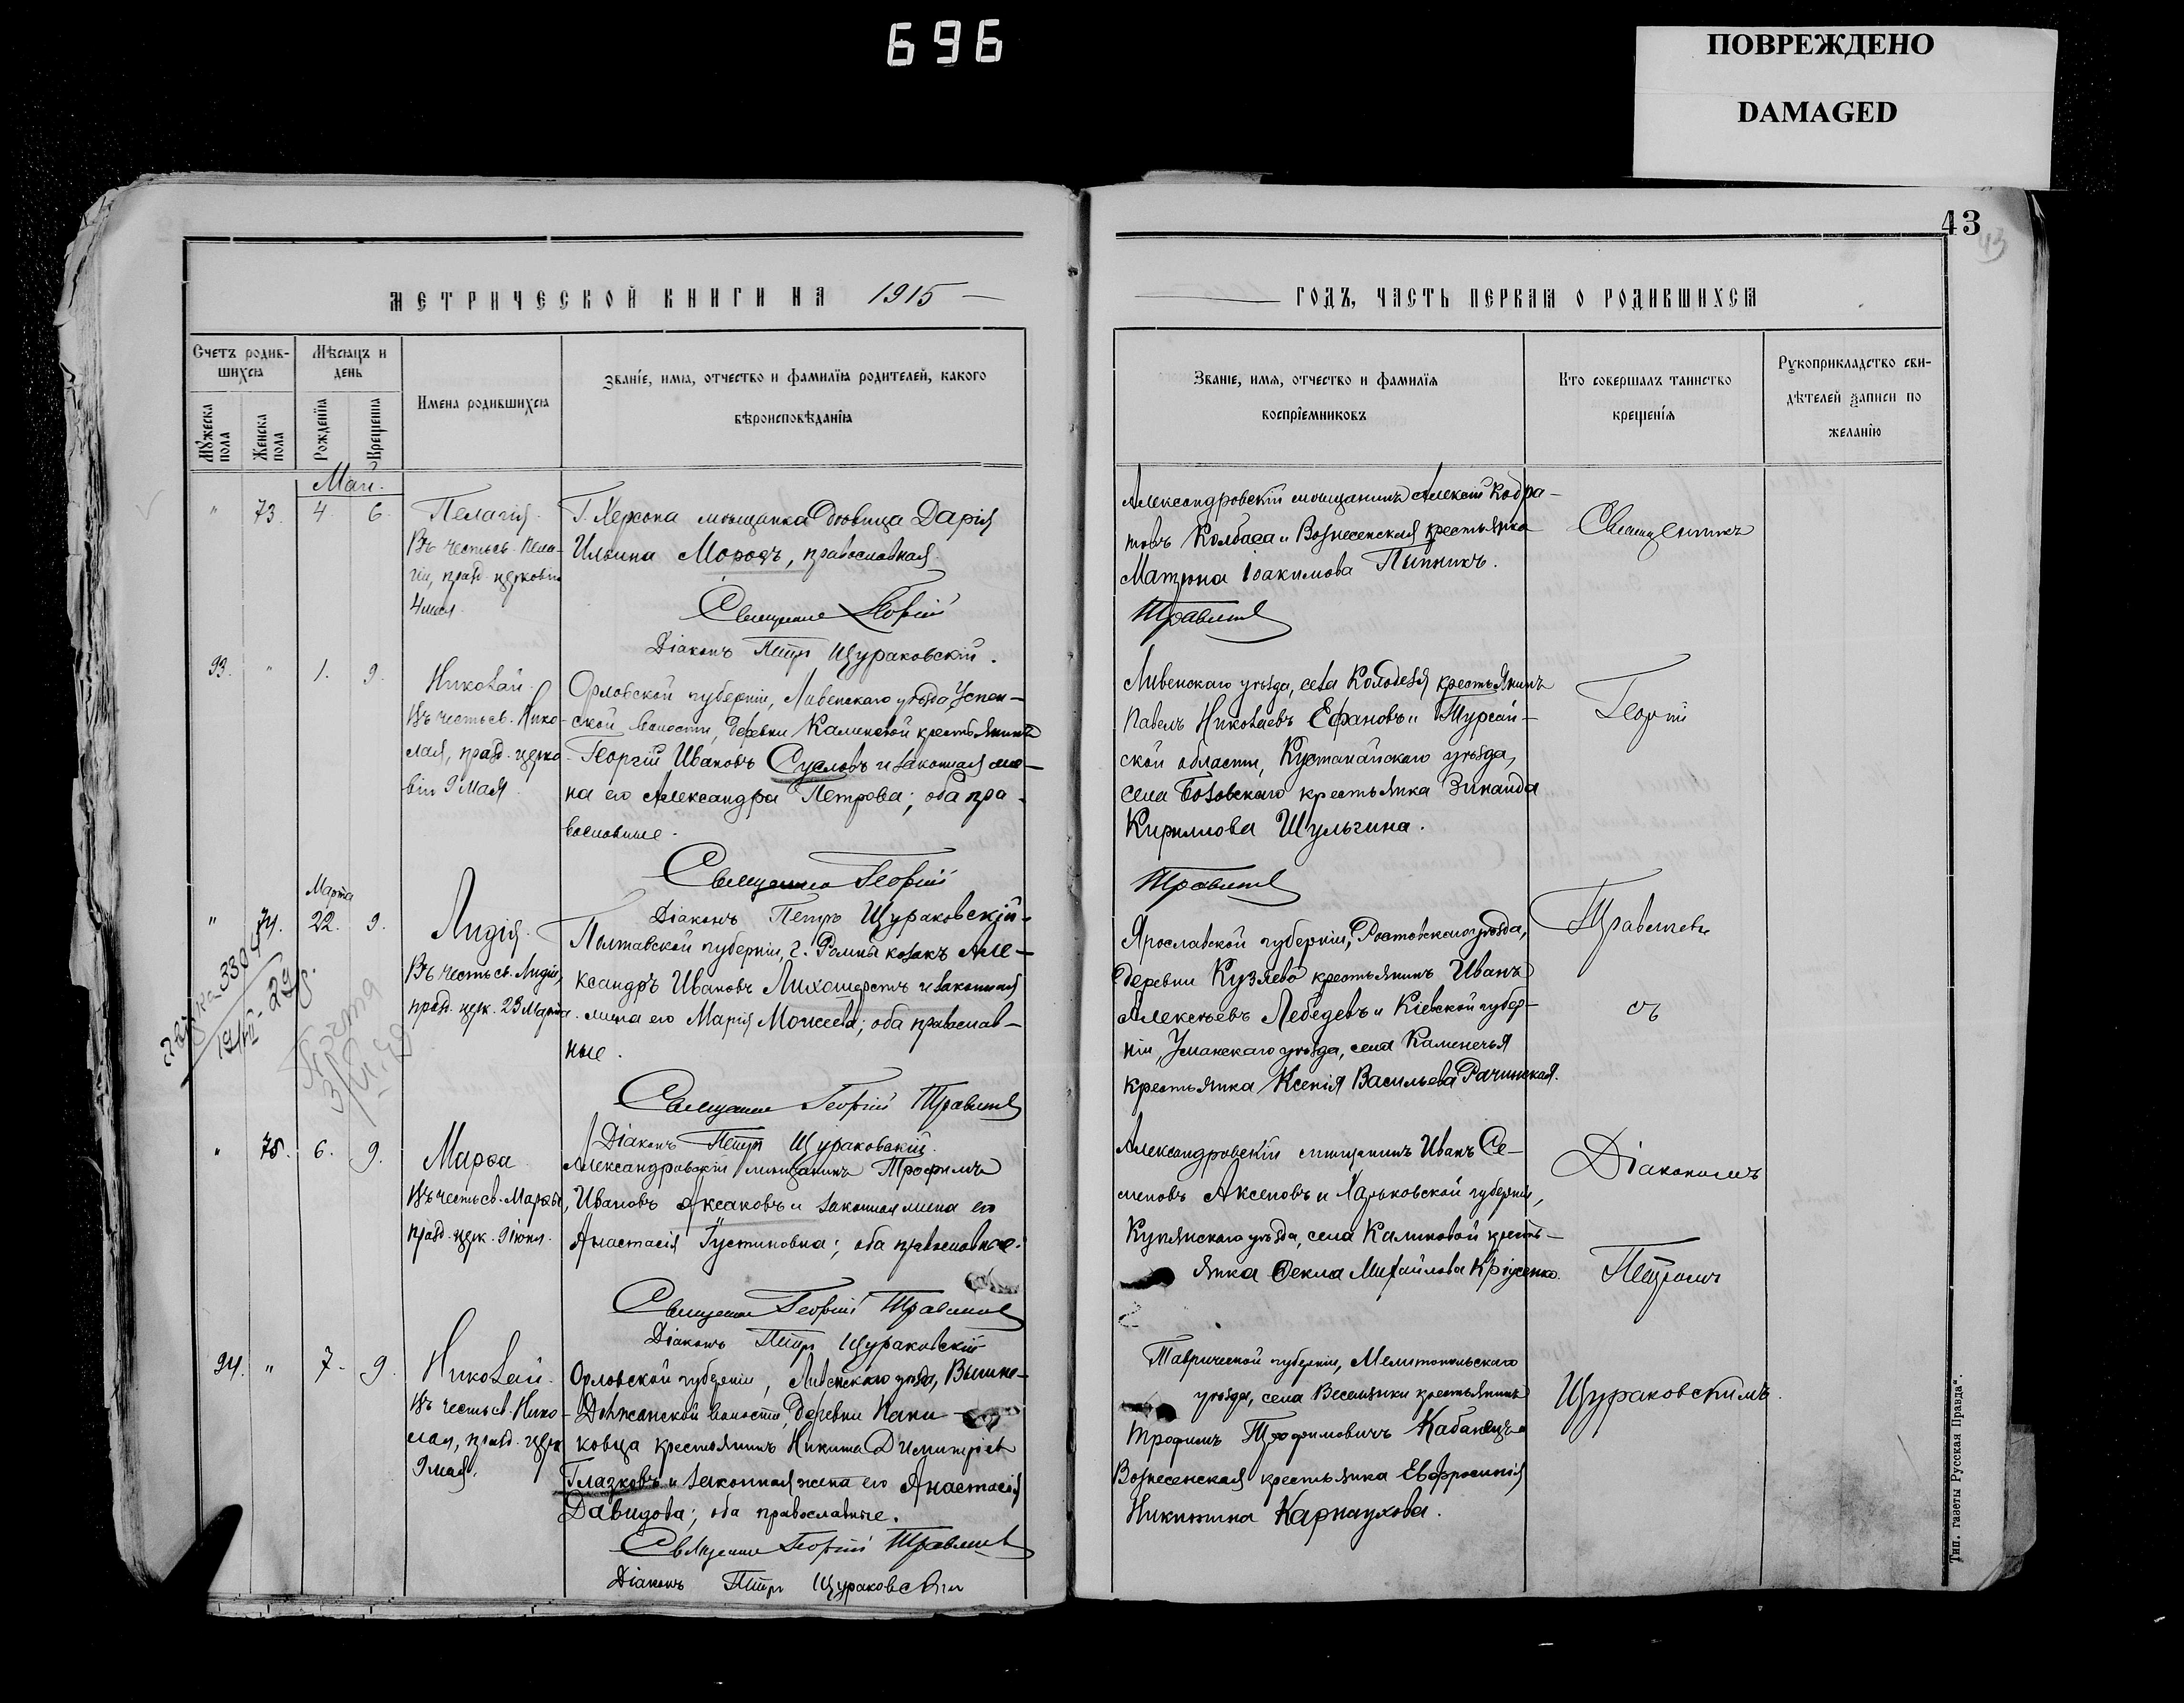 696
ПОВРЕЖДЕНО
DAMAGED
43
43
МЕТРИЧЕСКОЙ КНИГИ НА 1915
Счетъ родив-
шихся
Мѣсяцъ и
день
Имена родившихся
Званіе, имя, отчество и фамилія родителей, какого
вѣроисповѣданія
Мужеска
пола
Женска
пола
Рожденія
Крещенія
Май.
" 73. 4. 6.
Пелагія.
Въ честь св. Пела-
гіи, празд. церковію
4 мая.
Г. Херсона мѣщанка вдовица Дарія
Ильина Морозъ, православная.
Священникъ Георгій
Діаконъ Петръ Щураковскій.
93. " 1. 9.
Николай.
Въ честь св. Нико-
лая, празд. церко-
вію 9 Мая.
Орловской губерніи, Ливенскаго уѣзда, Успен-
ской волости, деревни крестьянинъ
Георгій Ивановъ Сусловъ и законная же-
на его Александра Петрова; оба пра-
вославные.
Священникъ Георгій
Діаконъ Петръ Щураковскій.
Марта
" 74. 22. 9.
Лидія.
Въ честь св. Лидіи,
празд. церк. 23 Марта.
Полтавской губерніи, г. Ромны козакъ Але-
ксандръ Ивановъ Лихошерстъ и законная
жена его Марія Моисеева; оба православ-
ные.
Священникъ Георгій Травлевъ
Діаконъ Петръ Щураковскій.
" 75. 6. 9.
Марѳа.
Въ честь св. Марѳы,
празд. церк. 9 іюня.
Александровскій мѣщанинъ Трофимъ
Ивановъ Аксаковъ и законная жена его
Анастасія Густиновна; оба православные.
Священникъ Георгій
Діаконъ Петръ Щураковскій
94. " 7. 9.
Николай.
Въ честь св. Нико-
лая, празд. церк.
9 мая.
Орловской губерніи, Ливенскаго уѣзда, Вышне-
Должанской волости, деревни
крестьянинъ Никита Димитріев
Глазковъ и законная жена его Анастасія
Давидова; оба православные.
Священникъ Георгій
Діаконъ Петръ Щураковскій
ГОДЪ, ЧАСТЬ ПЕРВАЯ О РОДИВШИХСЯ
Званіе, имя, отчество и фамилія
воспріемниковъ
Кто совершалъ таинство
крещенія
Рукоприкладство сви-
дѣтелей записи по
желанію
Александровскій мѣщанинъ Алексій Кодра-
товъ Колбаса и Вознесенская крестьянка
Матрона Іоакимова Пипникъ.
Ливенскаго уѣзда, села Колодезя крестьянинъ
Павелъ Николаевъ Ефановъ и Тургай-
ской области, Кустанайскаго уѣзда,
села крестьянка Зинаида
Кириллова Шульгина.
Ярославской губерніи, Ростовскаго уѣзда,
деревни Кузяево крестьянинъ Иванъ
Алексѣевъ Лебедевъ и Кіевской губер-
ніи, Уманскаго уѣзда, села Каменечья
крестьянка Ксенія Васильева Рачинская.
Александровскій мѣщанинъ Иванъ Се-
меновъ Аксеновъ и Харьковской губерніи,
Купянскаго уѣзда, села Калиновой кресть-
янка Ѳекла Михайлова
Таврической губерніи, Мелитопольскаго
уѣзда, села крестьянинъ
Трофимъ Трофимовичъ Кабанецъ и
Вознесенская крестьянка Евфросинія
Никитина Карнаухова.
Священникъ
Георгій
Діакономъ
Петромъ
Щураковскимъ.
Тип. газеты „Русская Правда".